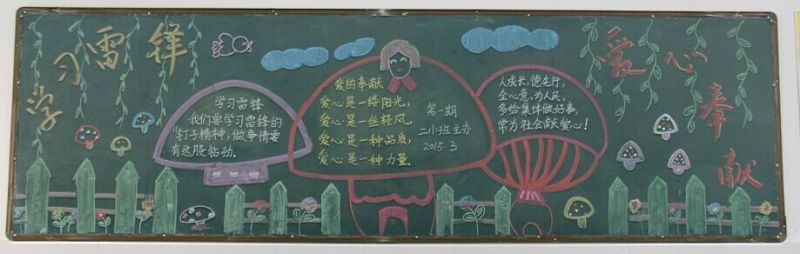 学习雷锋
学习雷锋
我们要学习雷锋的
钉子精神，做事情要
有这股钻劲。
爱的奉献
爱心是一缕阳光，
爱心是一丝轻风，
爱心是一种品质，
爱心是一种力量。
第一期
二(3)班主办
2015.3
人成长，德先行，
全心意，为人民，
多给集体做好事，
常为社会献爱心！
爱心奉献